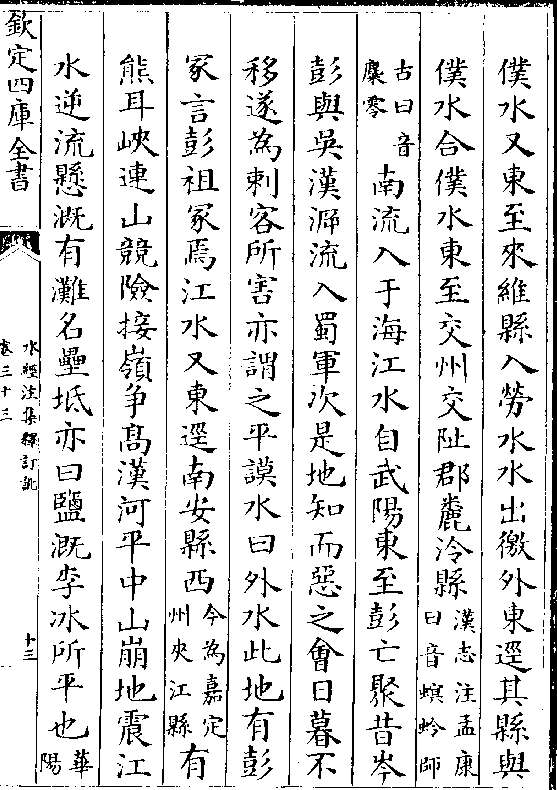 僕水又東至來維縣入勞水水出徼外東逕其縣與
僕水合僕水東至交州交阯郡麊泠縣漢志注孟康曰音螟蛉師
古曰音麋零南流入于海江水自武陽東至彭亡聚昔岑
彭與吳漢泝流入蜀軍次是地知而惡之會日暮不
移遂為刺客所害亦謂之平謨水曰外水此地有彭
冢言彭祖冢焉江水又東逕南安縣西今為嘉定州夾江縣有
熊耳峽連山競險接嶺爭高漢河平中山崩地震江
水逆流懸溉有灘名壘坻亦曰鹽溉李冰所平也華陽
欽定四庫全書
水經注集釋訂訛
卷三十三
十三